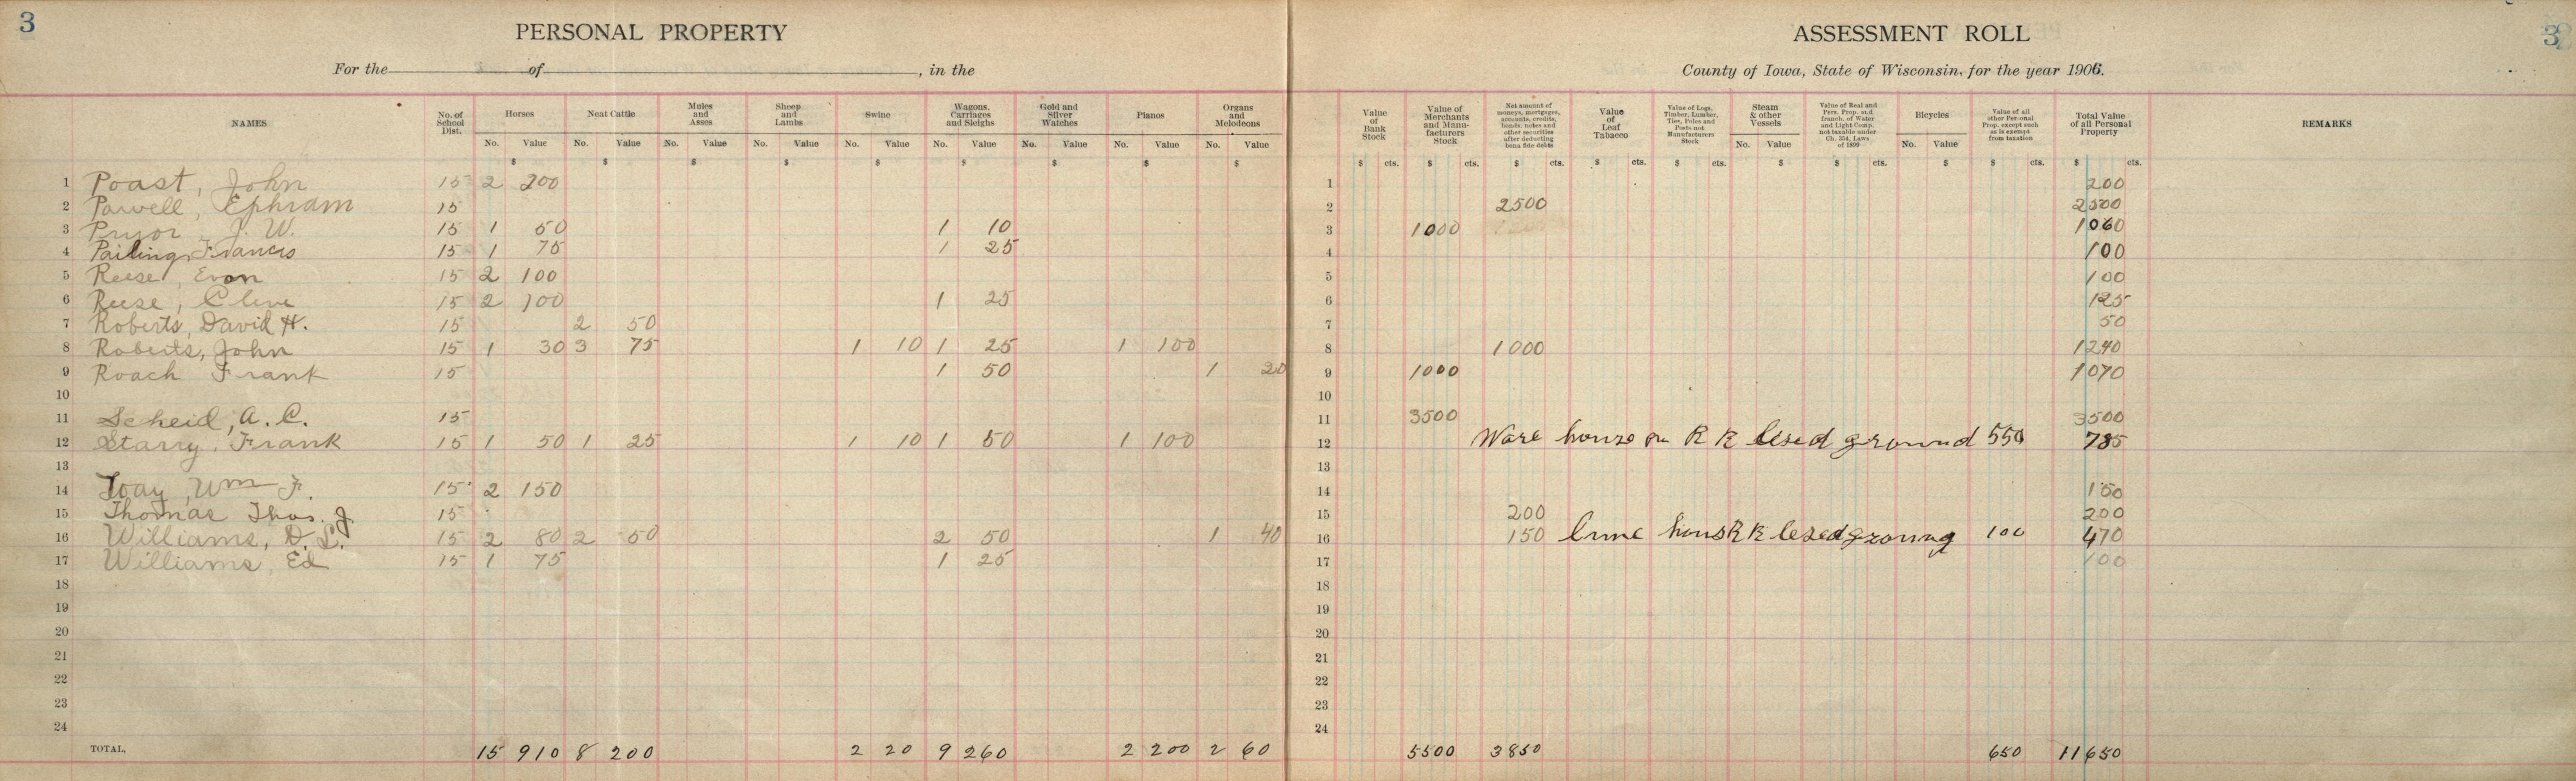 3 PERSONAL PROPERTY ASSESSMENT ROLL 3
For the of , in the County of Iowa, State of Wisconsin, for the year 1906.
NAMES No. of School Dist. Horses Neat Cattle Mules and Asses Sheep and Lambs Swine Wagons, Carriages and Sleighs Gold and Silver Watches Pianos Organs and Melodeons Value of Bank Stock Value of Merchants and Manufacturers Stock Net amount of moneys, mortgages, accounts, credits, bonds, notes and other securities after deducting bona fide debts Value of Leaf Tabacco Value of Logs, Timber, Lumber, Ties, Poles and Posts not Manufacturers Stock Steam & other Vessels Value of Real and Pers. Prop. and franch. of Water and Light Comp. not taxable under Ch. 354, Laws of 1899 Bicycles Value of all other Personal Prop. except such as is exempt from taxation Total Value of all Personal Property REMARKS
No. Value No. Value No. Value No. Value No. Value No. Value No. Value No. Value No. Value No. Value No. Value
$ $ $ $ $ $ $ $ $ $ cts. $ cts. $ cts. $ cts. $ cts. $ $ cts. $ $ cts. $ cts.
1 Poast, John 15 2 200 1 200
2 Powell, Ephram 15 2 2500 2500
3 Pryor, J. W. 15 1 50 1 10 3 1000 1060
4 Pailing, Francis 15 1 75 1 25 4 100
5 Reese, Evan 15 2 100 5 100
6 Reese, Clive 15 2 100 1 25 6 125
7 Roberts, David H. 15 2 50 7 50
8 Roberts, John 15 1 30 3 75 1 10 1 25 1 100 8 1000 1240
9 Roach Frank 15 1 50 1 20 9 1000 1070
10 10
11 Scheid, A. C. 15 11 3500 3500
12 Starry, Frank 15 1 50 1 25 1 10 1 50 1 100 12 Ware house on R R lesed ground 550 785
13 13
14 Toay, Wm F. 15 2 150 14 150
15 Thomas Thos. J. 15 15 200 200
16 Williams, D. L. 15 2 80 2 50 2 50 1 40 16 150 R R lesed 100 470
17 Williams, Ed 15 1 75 1 25 17 100
18 18
19 19
20 20
21 21
22 22
23 23
24 24
TOTAL, 15 910 8 200 2 20 9 260 2 200 2 60 5500 3850 650 11650